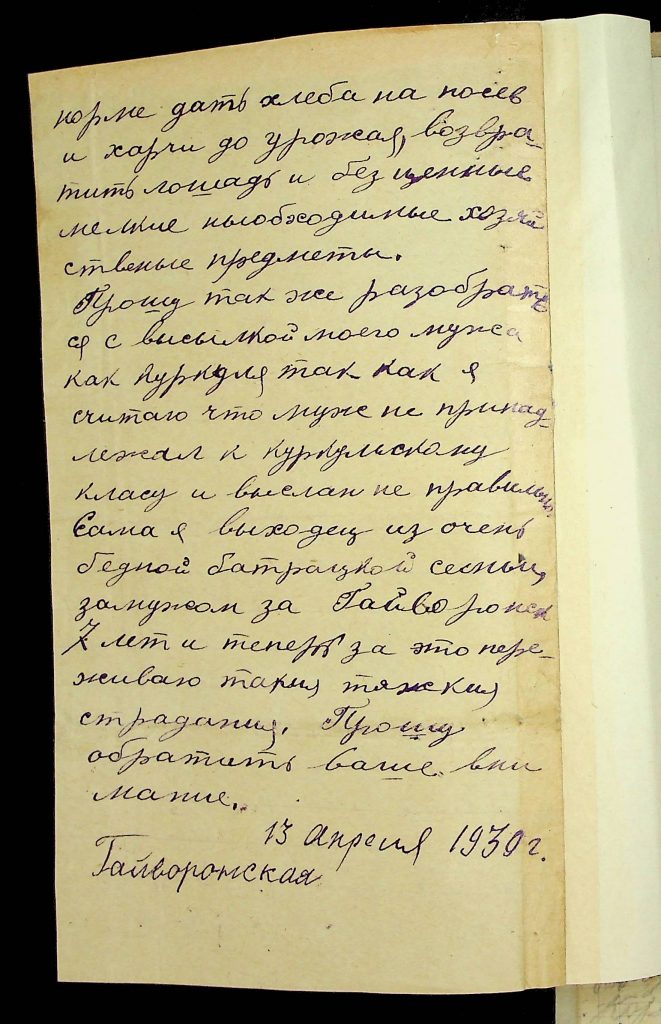 норме дать хлеба на посев
и харчи до урожая, возвра-
тить лошадь и без ценные
мелкие ныобходимые хозяй
ственые предметы.
Прошу так же разобрать
ся с высылкой моего мужа
как куркуля так как я
считаю что муж не принад-
лежал к куркульскому
класу и выслан не правильно.
Сама я выходец из очень
бедной батрацкой семьи,
замужом за Гайворонск
7 лет и теперь за это пере-
живаю такия тяжкия
страдания. Прошу
обратить ваше вни
мание.
13 апреля 1930 г.
Гайворонская